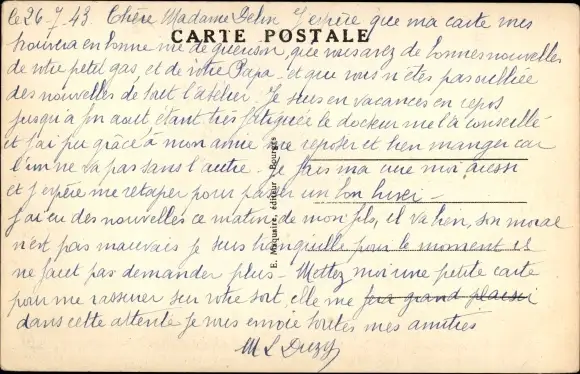 Le 26-7-43. Chère Madame Delin J'espère que ma carte vous
CARTE POSTALE
trouvera en bonne voie de guérison, que vous avez de bonnes nouvelles
de votre petit gas, et de votre Papa et que vous n'êtes pas oubliée
des nouvelles de tout l'atelier. Je suis en vacances en repos
jusqu'à fin aout étant très fatiguée le docteur me l'a conseillé
et j'ai pu grâce à mon amie me reposer et bien manger car
l'un ne va pas sans l'autre. Je fais ma cure moi aussi
et j'espère me retaper pour passer un bon hiver -
j'ai eu des nouvelles ce matin de mon fils, il va bien, son moral
n'est pas mauvais je suis tranquille pour le moment il
ne faut pas demander plus - Mettez moi une petite carte
pour me rassurer sur votre sort, elle me fera grand plaisir
dans cette attente je vous envoie toutes mes amitiés
M L Duzy
E. Maquaire, éditeur, Bourges